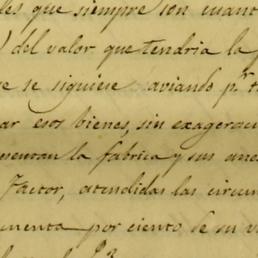 les que siempre son cuant
) del valor que tendria la f
e se siguiese aviando pr. t
ar esos bienes, sin exagerac
mentan la fabrica y sus ane
Factor, atendidas las circun
nuenta por ciento de su v